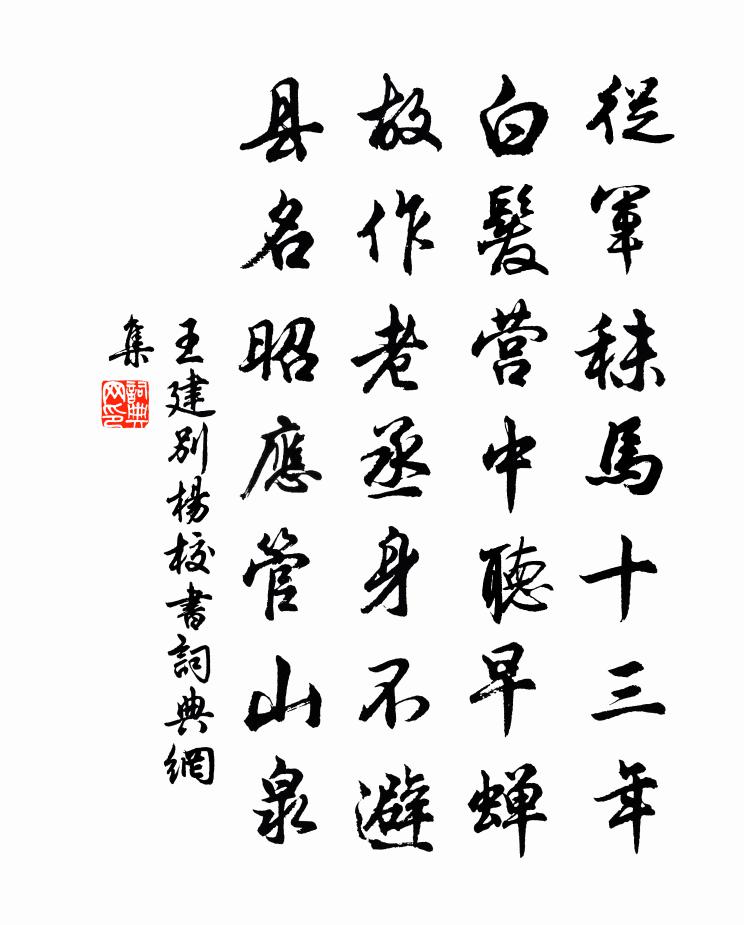 從軍秣馬十三年
白髮营中聽早蝉
故作老丞身不避
县名昭應管山泉
王建别楊校書詞典網
集
詞典
网印